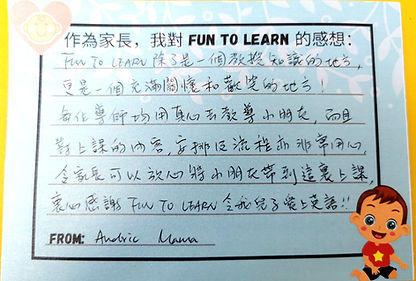 作為家長，我對 FUN TO LEARN 的感想：
FUN TO LEARN 除了是一個教授知識的地方，
更是一個充滿關懷和歡笑的地方！
每位導師均用真心去教導小朋友，而且
對上課的內容、安排及流程亦非常用心，
令家長可以放心將小朋友帶到這裏上課，
衷心感謝 FUN TO LEARN 令我兒子愛上英語!!
FROM: Andric Mama